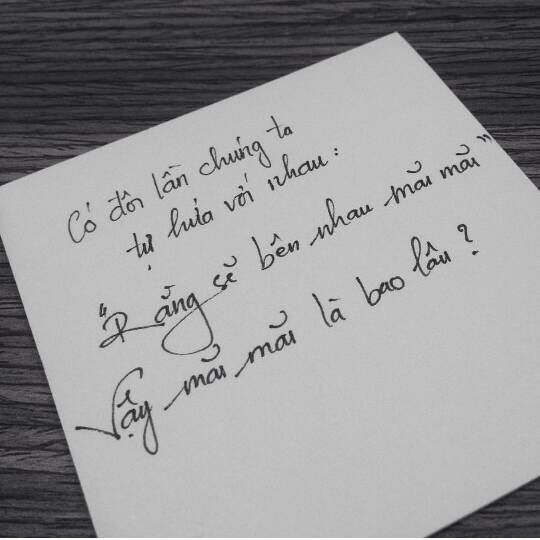 Có đôi lần chúng ta
tự hứa với nhau:
"Rằng sẽ bên nhau mãi mãi"
Vậy mãi mãi là bao lâu?